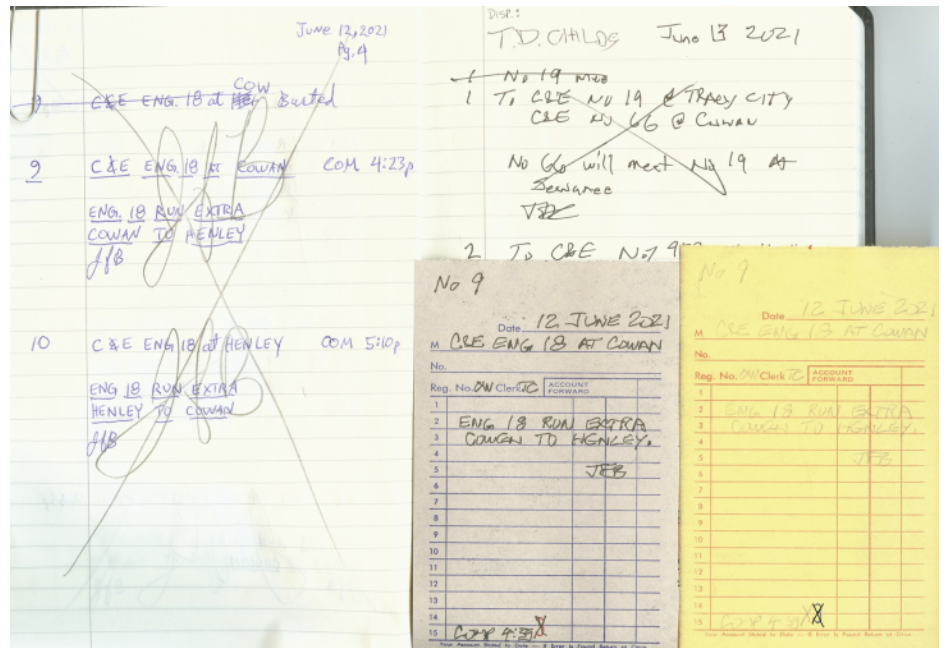 June 12, 2021
Pg. 4
9 C&E ENG. 18 at COW Busted
9 C&E ENG. 18 AT COWAN COM 4:23p
ENG. 18 RUN EXTRA
COWAN TO HENLEY
JFB
10 C&E ENG 18 at HENLEY COM 5:10p
ENG 18 RUN EXTRA
HENLEY TO COWAN
JFB
DISP.:
T.D. CHILDS June 13 2021
1 No 19 mee
1 To C&E No 19 @ TRACY CITY
C&E No 66 @ Cowan
No 66 will meet No 19 At
Sewanee
2 To C&E No
No 9
Date 12 JUNE 2021
M C&E ENG 18 AT COWAN
No.
Reg. No. OW Clerk TC ACCOUNT FORWARD
1
2 ENG 18 RUN EXTRA
3 COWEN TO HENLEY.
4
5 JFB
6
7
8
9
10
11
12
13
14
15
Your Account Stated to Date — If Error Is Found Return at Once
No 9
Date 12 JUNE 2021
M C&E ENG 18 AT COWAN
No.
Reg. No. OW Clerk TC ACCOUNT FORWARD
1
2 ENG 18 RUN EXTRA
3 COWEN TO HENLEY.
4
5 JFB
6
7
8
9
10
11
12
13
14
15
Your Account Stated to Date — If Error Is Found Return at Once